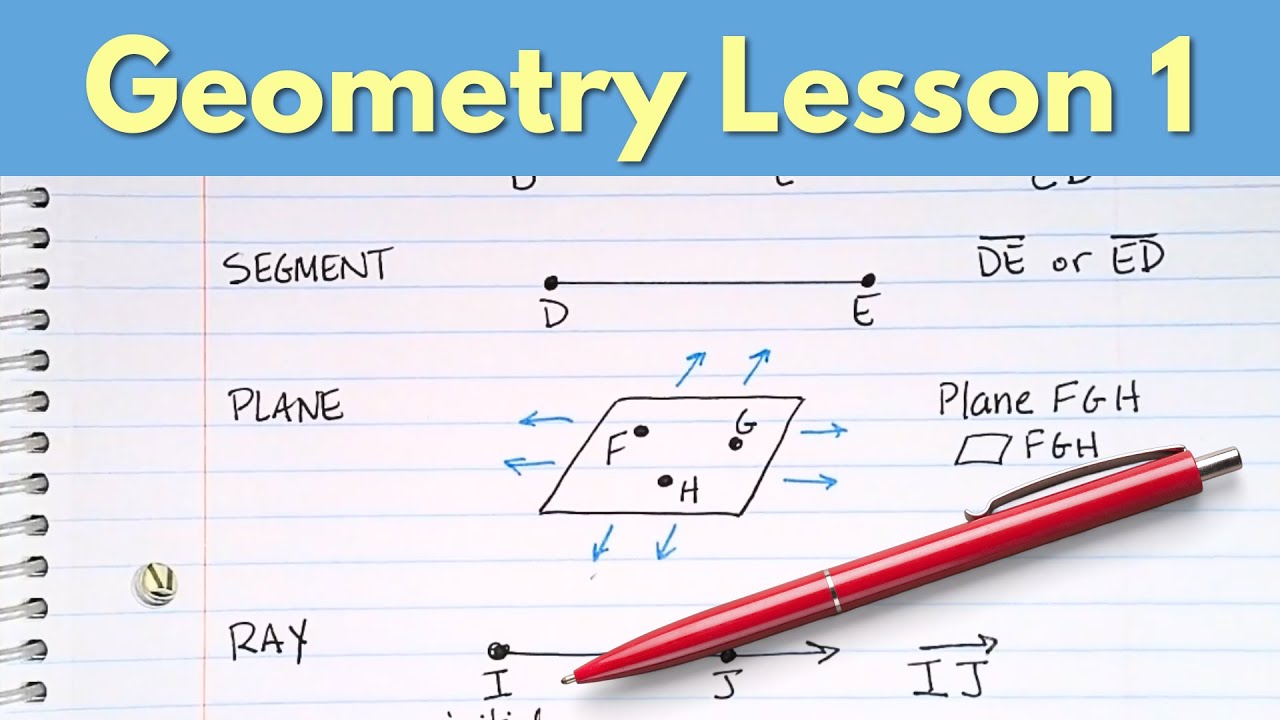 Geometry Lesson 1
SEGMENT
D E
DE or ED
PLANE
F G
H
Plane FGH
FGH
RAY
I J
IJ